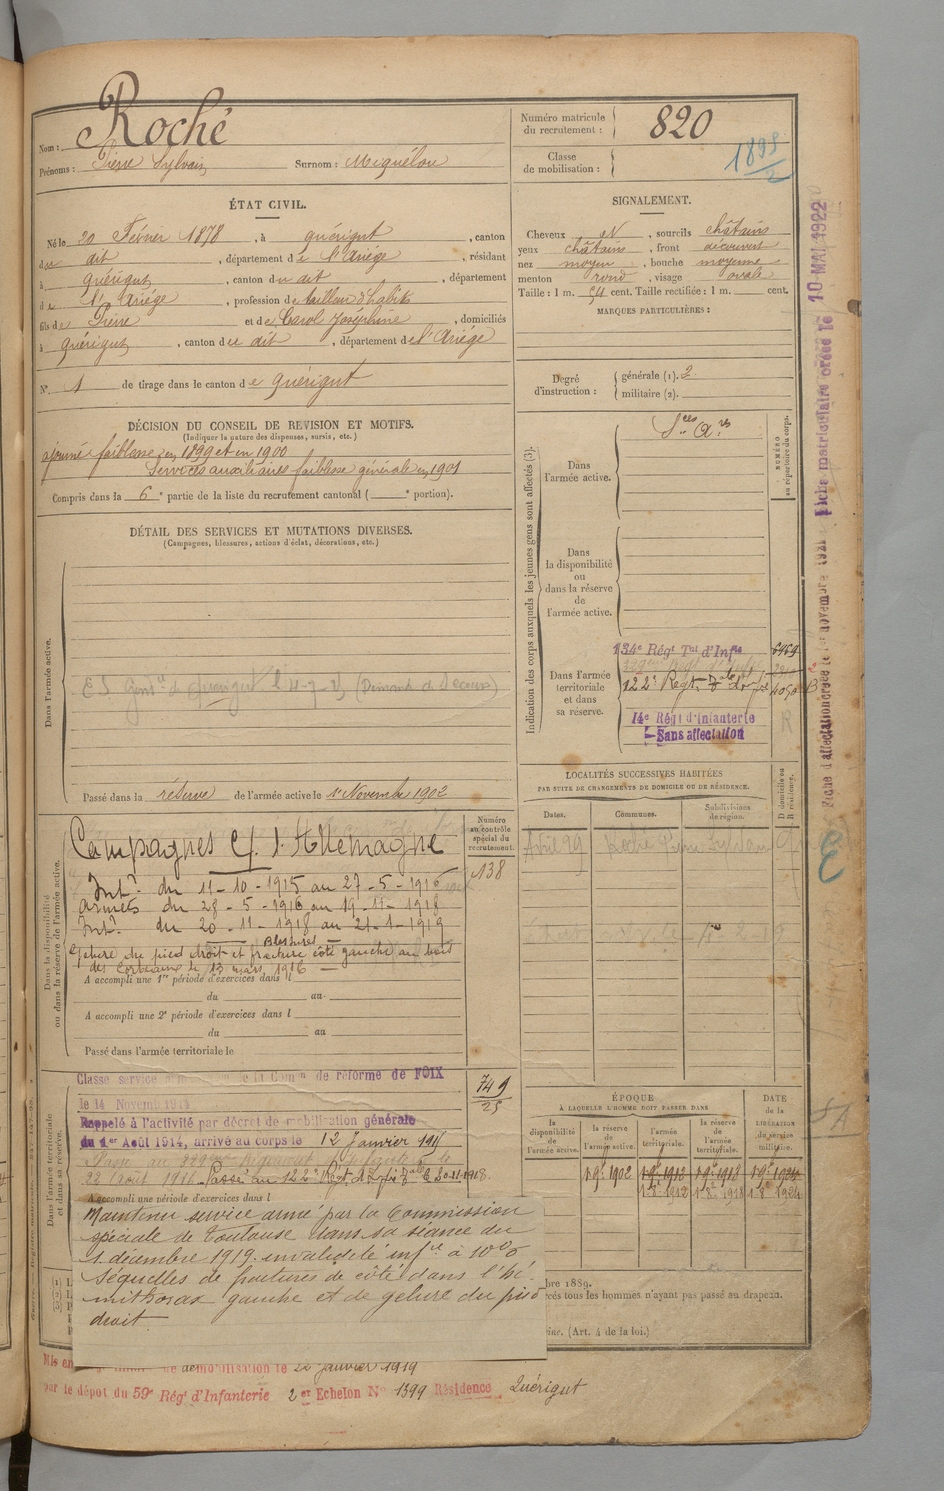 Nom : Roché
Prénoms : Pierre Sylvain Surnom : Miquélou
Numéro matricule du recrutement : 820
Classe de mobilisation : 1898/2
ÉTAT CIVIL.
Né le 20 Février 1878, à Quérigut, canton
du dit, département de l'Ariège, résidant
à Quérigut, canton du dit, département
de l'Ariége, profession de tailleur d'habits
fils de Pierre et de Carol Joséphine, domiciliés
à Quérigut, canton du dit, département de l'Ariége
N° 1 de tirage dans le canton de Quérigut
SIGNALEMENT.
Cheveux N, sourcils châtains
yeux châtains, front découvert
nez moyen, bouche moyenne
menton rond, visage ovale
Taille : 1 m. 54 cent. Taille rectifiée : 1 m. cent.
MARQUES PARTICULIÈRES :
Degré d'instruction : générale (1). 2
militaire (2).
DÉCISION DU CONSEIL DE REVISION ET MOTIFS.
(Indiquer la nature des dispenses, sursis, etc.)
ajourné faiblesse en 1899 et en 1900
Services auxiliaires faiblesse générale en 1901
Compris dans la 6e partie de la liste du recrutement cantonal ( e portion).
DÉTAIL DES SERVICES ET MUTATIONS DIVERSES.
(Campagnes, blessures, actions d'éclat, décorations, etc.)
Dans l'armée active.
Passé dans la réserve de l'armée active le 1er Novembre 1902
Indication des corps auxquels les jeunes gens sont affectés (3).
NUMÉRO au répertoire du corps.
Dans l'armée active.
Sces Ares
Dans la disponibilité ou dans la réserve de l'armée active.
Dans l'armée territoriale et dans sa réserve.
134e Régt Tal d'Infie 6969
122e Regt 4050
14e Régt d'Infanterie
Sans affectation
R
Fiche matriculaire créée le 10 MAI 1922
Fiche d'affectation créée le 1er novembre 1921
LOCALITÉS SUCCESSIVES HABITÉES
PAR SUITE DE CHANGEMENTS DE DOMICILE OU DE RÉSIDENCE.
Dates. Communes. Subdivisions de région. D domicile ou R résidence.
Dans la disponibilité ou dans la réserve de l'armée active.
Numéro au contrôle spécial du recrutement.
138
Campagnes c/. l'Allemagne
Intr du 11-10-1915 au 27-5-1916
Armées du 28-5-1916 au 19-11-1918
Intr du 20-11-1918 au 21-1-1919
Blessures
gelure du pied droit et fracture côté gauche au bois
des Corbeaux le 13 mars 1916
A accompli une 1re période d'exercices dans l
du au
A accompli une 2e période d'exercices dans l
du au
Passé dans l'armée territoriale le
Dans l'armée territoriale et dans sa réserve.
Classé service de la Comon de réforme de FOIX
le 14 Novemb 1914
749/25
Rappelé à l'activité par décret de mobilisation générale
du 1er Août 1914, arrivé au corps le 12 Janvier 191
22 Août 1916 Passé au 122e Regt d'Infie le 20-11-1918.
A accompli une période d'exercices dans l
Maintenu service armé par la Commission
spéciale de Toulouse dans sa séance du
1 décembre 1919. invalidité infre à 10%
séquelles de fractures de côté dans l'hé-
mithorax gauche et de gelure du pied
droit
ÉPOQUE
À LAQUELLE L'HOMME DOIT PASSER DANS
la disponibilité de l'armée active. la réserve de l'armée active. l'armée territoriale. la réserve de l'armée territoriale.
DATE de la LIBÉRATION du service militaire.
1 9bre 1902 1 9bre 1912 1 9bre 1918 1 9bre 1924
1 8bre 1912 1 8bre 1918 1 8bre 1924
bre 1889.
cés tous les hommes n'ayant pas passé au drapeau.
(Art. 4 de la loi.)
Mis en de démobilisation le 22 janvier 1919
par le dépôt du 59e Régt d'Infanterie 2er Echelon N° 1399 Résidence Quérigut